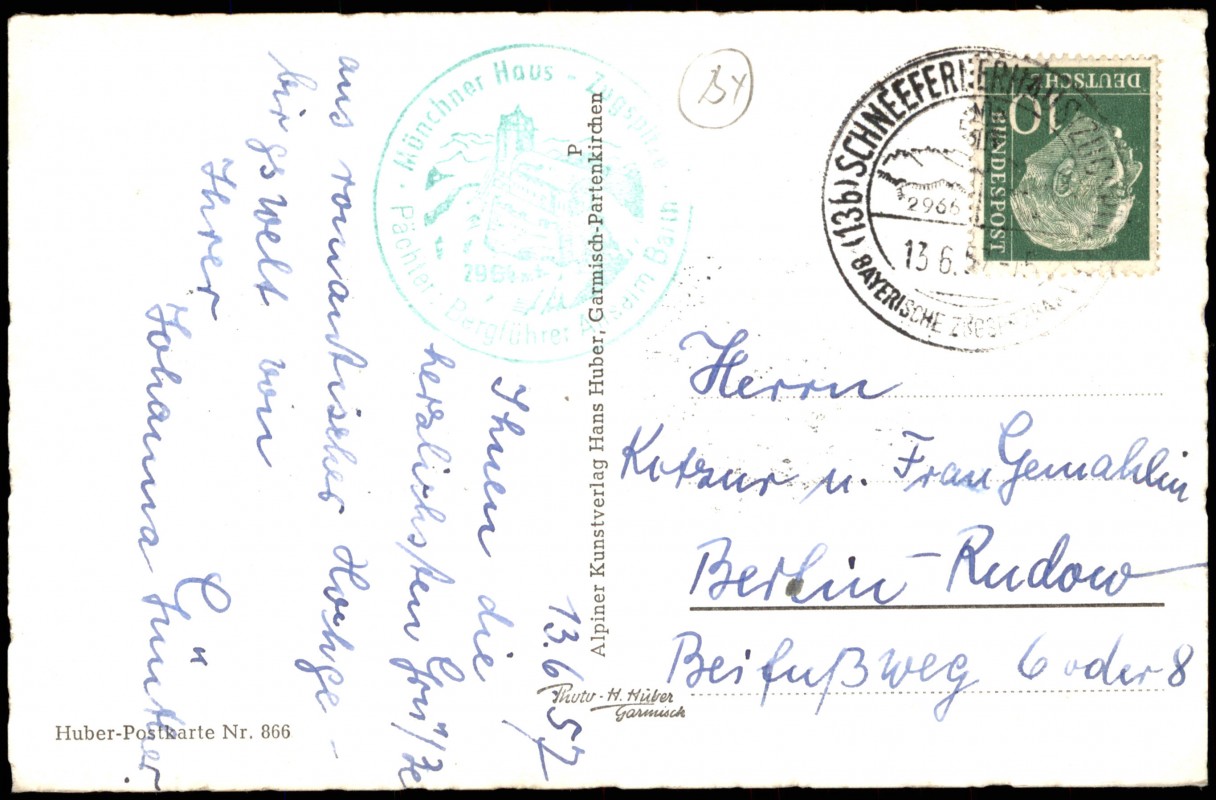 13.6.57
Ihnen die
herzlichsten Grüße
aus romantischer Hochge-
birgswelt von
Ihrer
Johanna Günther
Münchner Haus - Zugspitze
Pächter: Bergführer Anselm Barth
2964
Alpiner Kunstverlag Hans Huber, Garmisch-Partenkirchen
P
Photo - H. Huber
Garmisch
Huber-Postkarte Nr. 866
(13b) SCHNEEFERNERHAUS
2966
13.6.57
BAYERISCHE ZUGSPITZBAHN
DEUTSCHE
BUNDESPOST
10
Herrn
Kotzur u. Frau Gemahlin
Berlin-Rudow
Beifußweg 6 oder 8